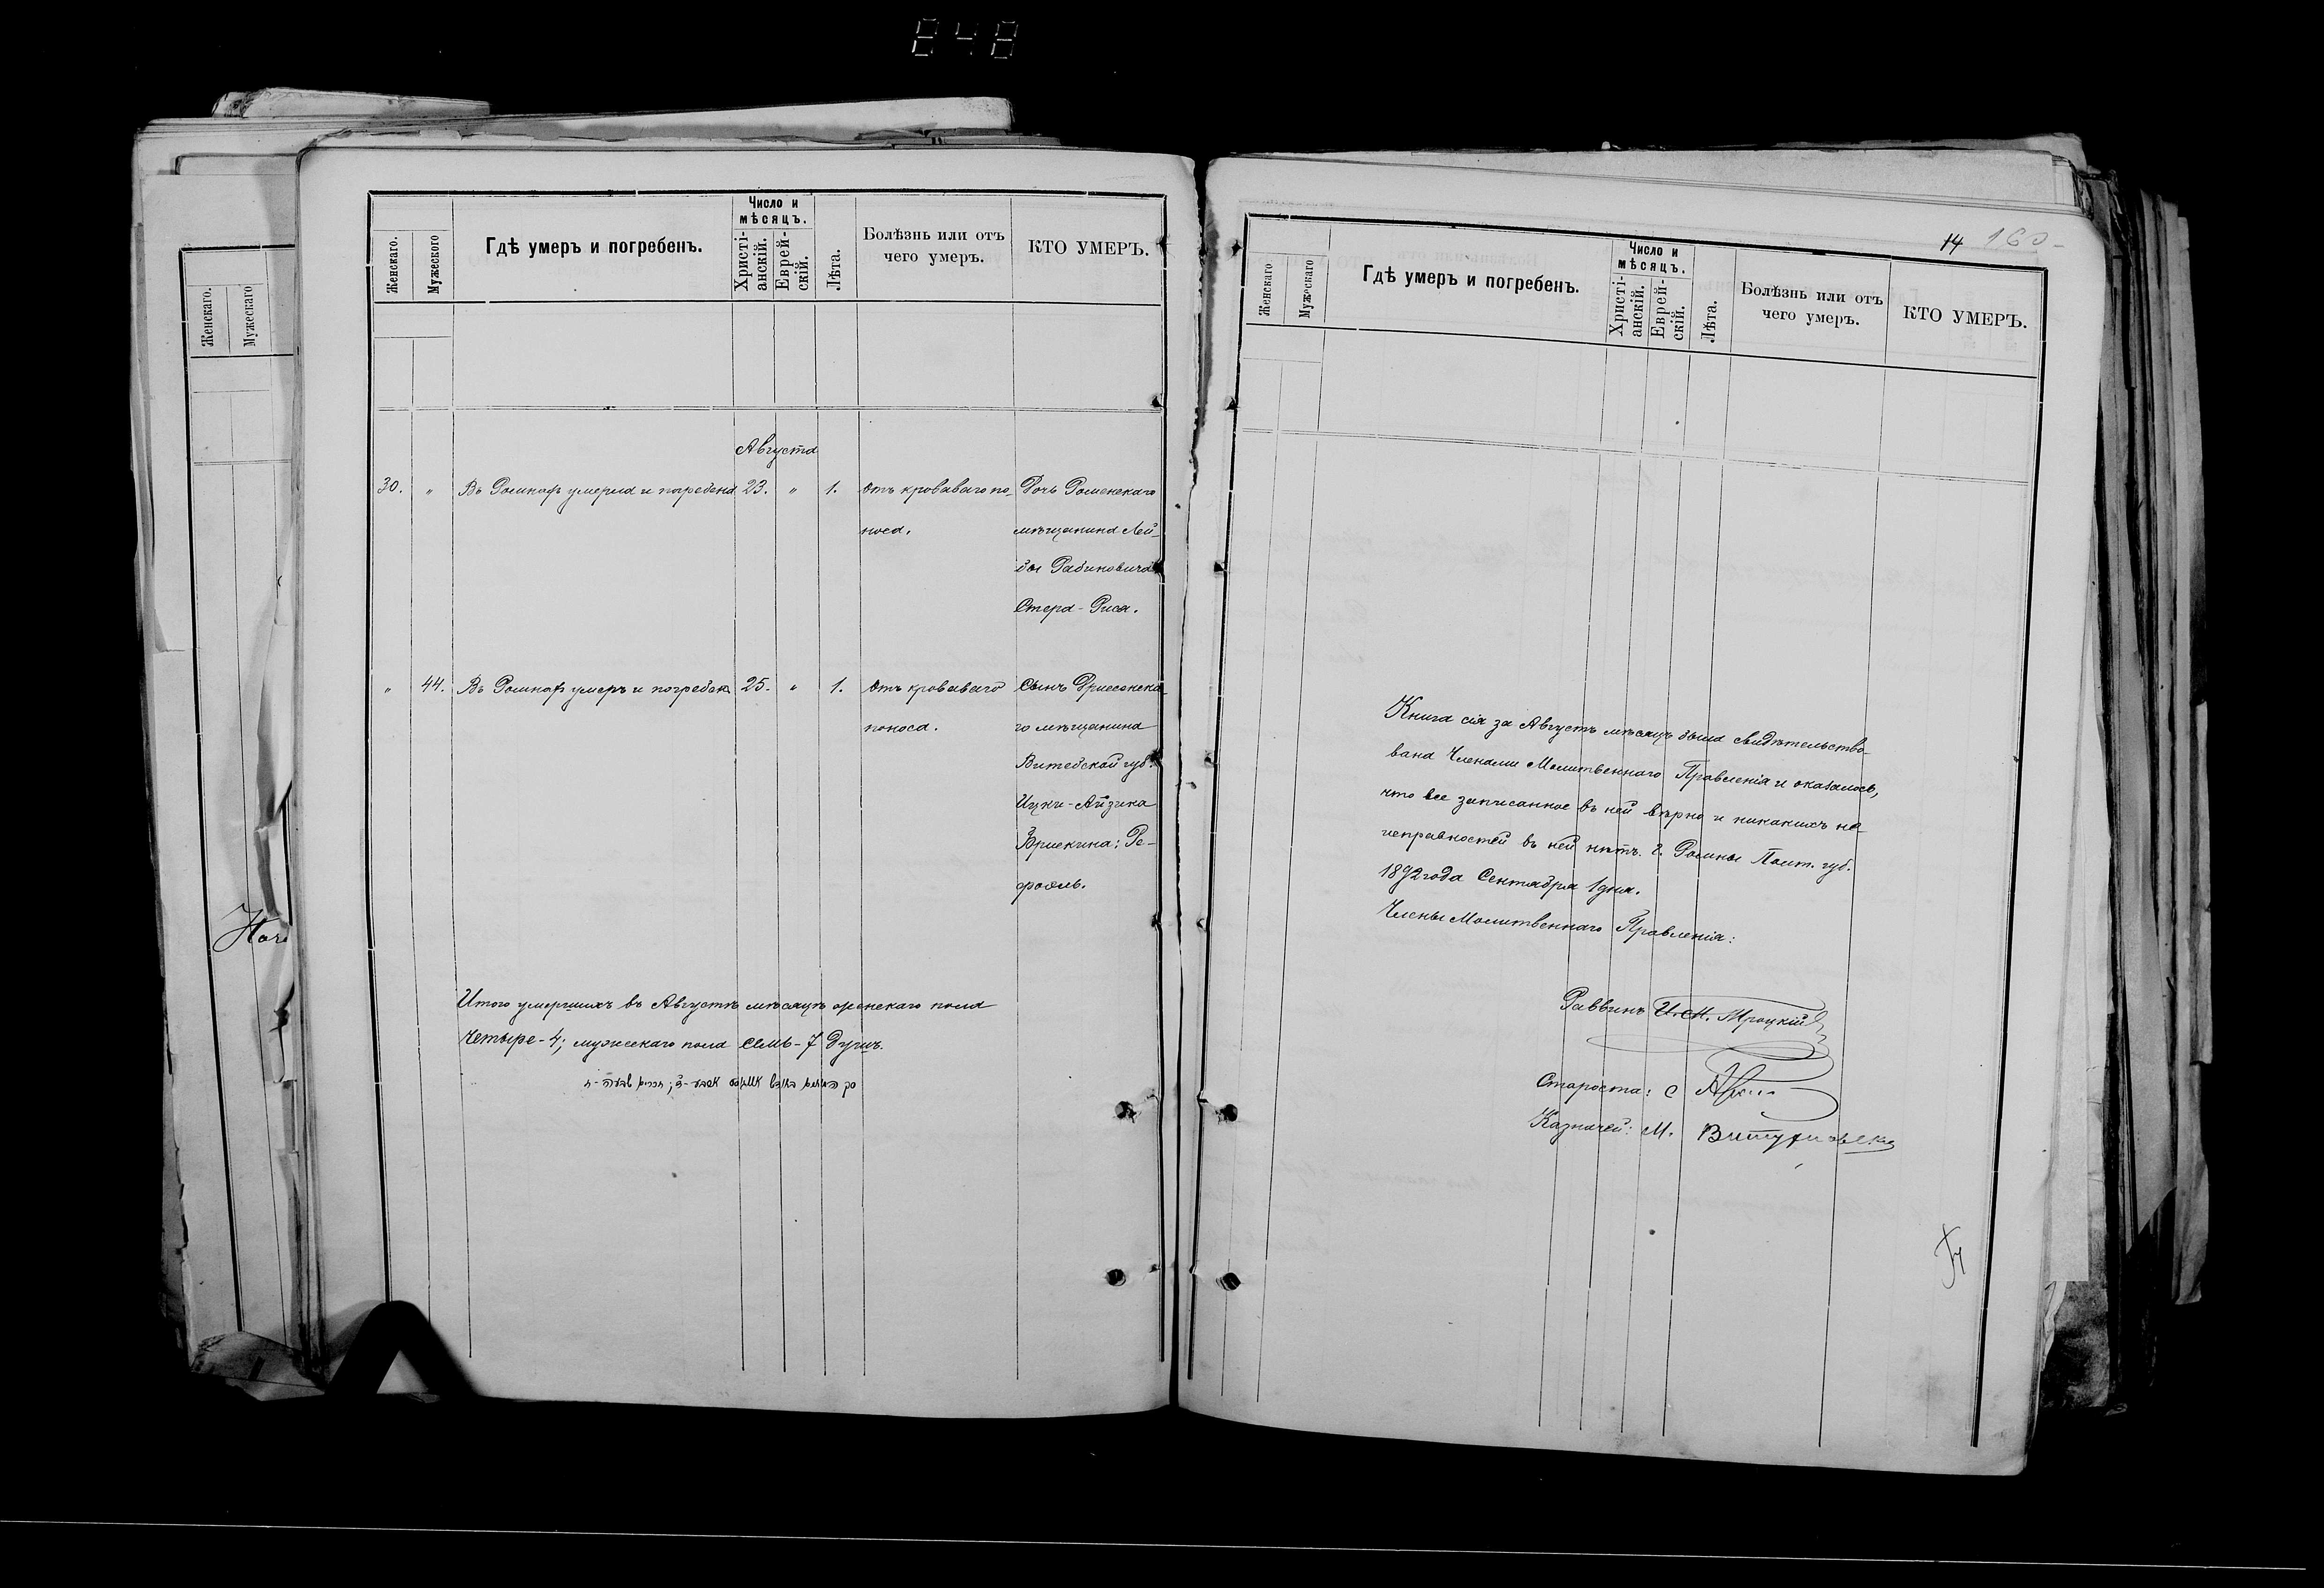 848
Женскаго.
Мужескаго
Нач
Женскаго.
Мужескаго
Гдѣ умеръ и погребенъ.
Число и
мѣсяцъ.
Христі-
анскій.
Еврей-
скій.
Лѣта.
Болѣзнь или отъ
чего умеръ.
КТО УМЕРЪ.
Августа
30. " Въ Ромнахъ умерла и погребена 23. " 1. Отъ кроваваго по-
носа.
Дочь Роменскаго
мѣщанина Лей-
бы Рабиновича
Стера-Рися.
" 44. Въ Ромнахъ умеръ и погребенъ 25. " 1. Отъ кроваваго
поноса.
Сынъ Дриссенска-
го мѣщанина
Витебской губ.
Ицки-Айзика
Брискина: Ре-
фоэль.
Итого умершихъ въ Августѣ мѣсяцѣ женскаго пола
Четыре-4; мужескаго пола семь-7 душъ.
14 160-
Женскаго
Мужескаго
Гдѣ умеръ и погребенъ.
Число и
мѣсяцъ.
Христі-
анскій.
Еврей-
скій.
Лѣта.
Болѣзнь или отъ
чего умеръ.
КТО УМЕРЪ.
Книга сія за Августъ мѣсяцъ была свидѣтельство-
вана Членами Молитвеннаго Правленія и оказалось,
что все записанное въ ней вѣрно и никакихъ не-
исправностей въ ней нѣтъ. г. Ромны Полт. губ.
1892 года Сентября 1 дня.
Члены Молитвеннаго Правленія:
Раввинъ И. М. Троцкій
Староста: С
Казначей: М.